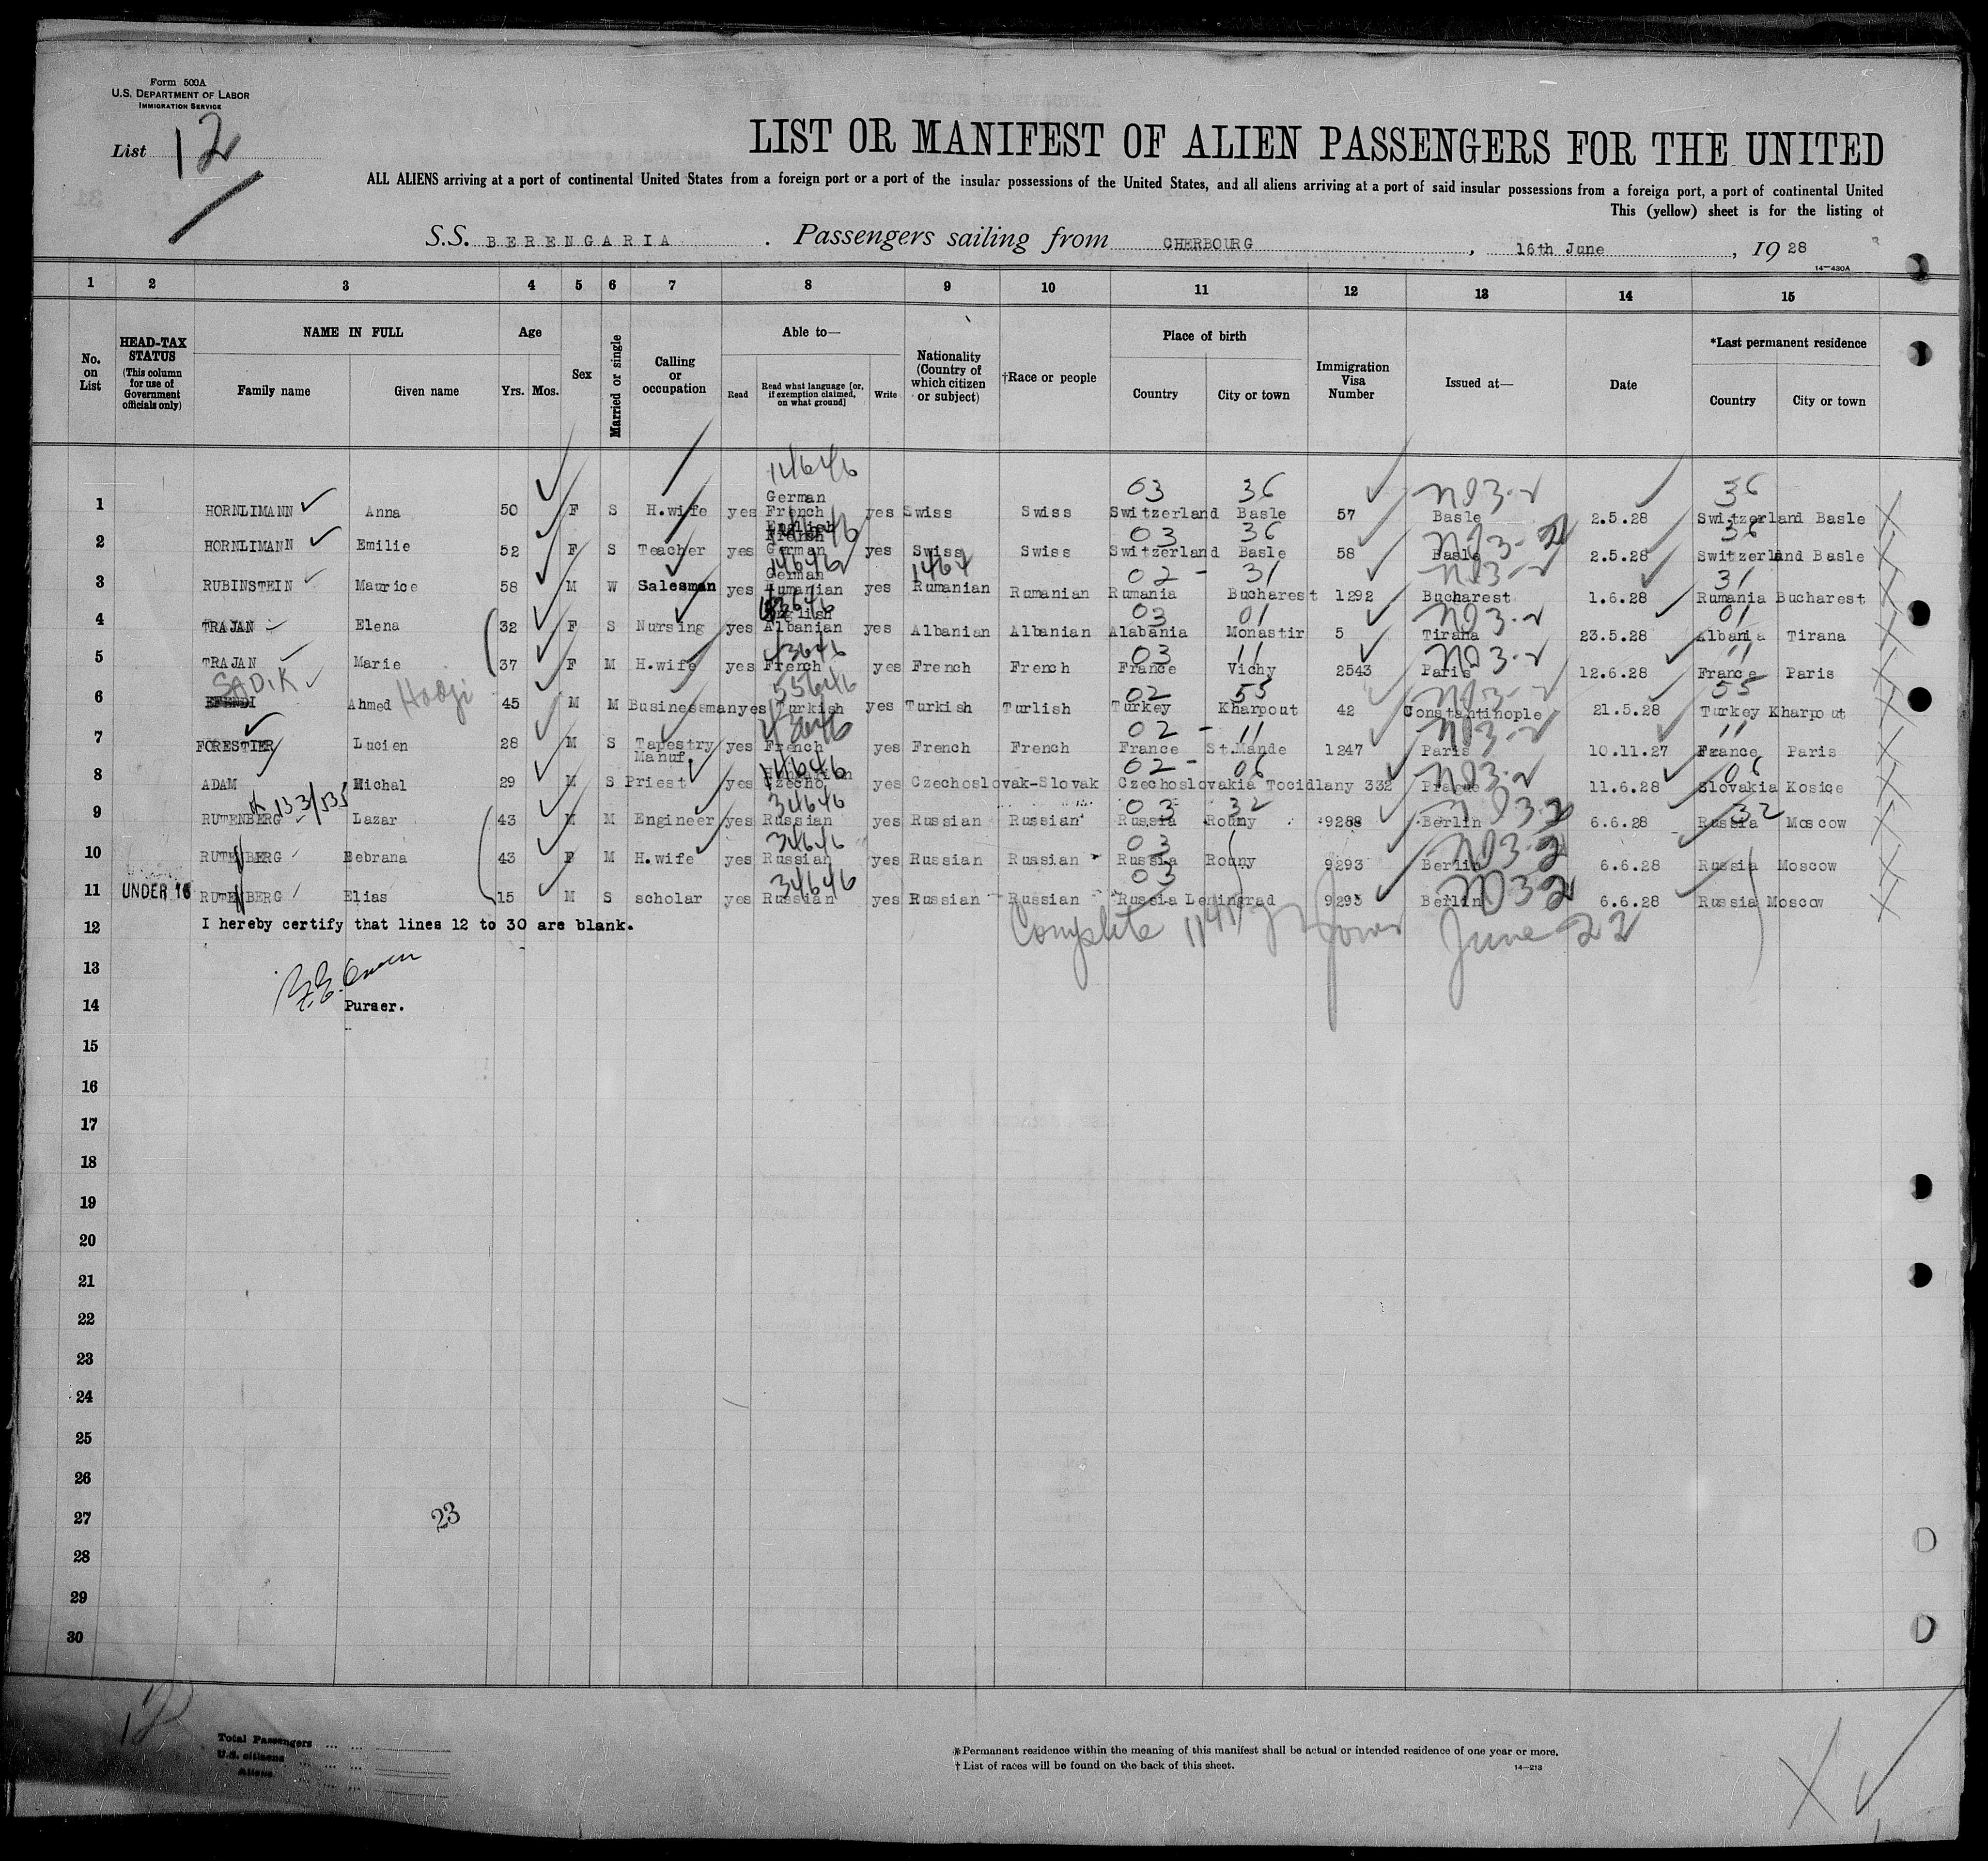 Form 500A
U.S. DEPARTMENT OF LABOR
IMMIGRATION SERVICE
List 12
LIST OR MANIFEST OF ALIEN PASSENGERS FOR THE UNITED
ALL ALIENS arriving at a port of continental United States from a foreign port or a port of the insular possessions of the United States, and all aliens arriving at a port of said insular possessions from a foreign port, a port of continental United
This (yellow) sheet is for the listing of
S.S. BERENGARIA. Passengers sailing from CHERBOURG, 16th June, 1928
14—430A
1 2 3 4 5 6 7 8 9 10 11 12 13 14 15
No. on List
HEAD-TAX STATUS (This column for use of Government officials only)
NAME IN FULL
Family name Given name
Age
Yrs. Mos.
Sex
Married or single
Calling or occupation
Able to—
Read Read what language [or, if exemption claimed, on what ground] Write
Nationality (Country of which citizen or subject)
†Race or people
Place of birth
Country City or town
Immigration Visa Number
Issued at—
Date
*Last permanent residence
Country City or town
14646 03 36 N03-2 36
1 HORNLIMANN Anna 50 F S H.wife yes German French English yes Swiss Swiss Switzerland Basle 57 Basle 2.5.28 Switzerland Basle
03 36 N03-2 36
2 HORNLIMANN Emilie 52 F S Teacher yes French German yes Swiss Swiss Switzerland Basle 58 Basle 2.5.28 Switzerland Basle
14646 1464 02 - 31 N03-2 31
3 RUBINSTEIN Maurice 58 M W Salesman yes German Rumanian yes Rumanian Rumanian Rumania Bucharest 1292 Bucharest 1.6.28 Rumania Bucharest
03 01 N03-2 01
4 TRAJAN Elena 32 F S Nursing yes English Albanian yes Albanian Albanian Alabania Monastir 5 Tirana 23.5.28 Albania Tirana
43646 03 11 N03-2 11
5 TRAJAN Marie 37 F M H.wife yes French yes French French France Vichy 2543 Paris 12.6.28 France Paris
SADIK 55646 02 55 N03-2 55
6 EFENDI Ahmed Hodgi 45 M M Businessman yes Turkish yes Turkish Turlish Turkey Kharpout 42 Constantinople 21.5.28 Turkey Kharpout
43646 02 - 11 N03-2 11
7 FORESTIER Lucien 28 M S Tapestry Manuf. yes French yes French French France St.Mande 1247 Paris 10.11.27 France Paris
14646 02 - 06 N03-2 06
8 ADAM Michal 29 M S Priest yes Czecho yes Czechoslovak-Slovak Czechoslovakia Tocidlany 332 Prague 11.6.28 Slovakia Kosice
34646 03 32 N03-2 32
9 RUTENBERG Lazar 43 M M Engineer yes Russian yes Russian Russian Russia Rouny 9288 Berlin 6.6.28 Russia Moscow
34646 03 N03-2
10 RUTENBERG Debrana 43 F M H.wife yes Russian yes Russian Russian Russia Rouny 9293 Berlin 6.6.28 Russia Moscow
34646 03 N032
11 UNDER 16 RUTENBERG Elias 15 M S scholar yes Russian yes Russian Russian Russia Leningrad 9295 Berlin 6.6.28 Russia Moscow
12 I hereby certify that lines 12 to 30 are blank.
Complete June 22
13
14 Purser.
15
16
17
18
19
20
21
22
23
24
25
26
27
23
28
29
30
12
Total Passengers
U.S. citizens
Aliens
*Permanent residence within the meaning of this manifest shall be actual or intended residence of one year or more.
†List of races will be found on the back of this sheet.
14—213